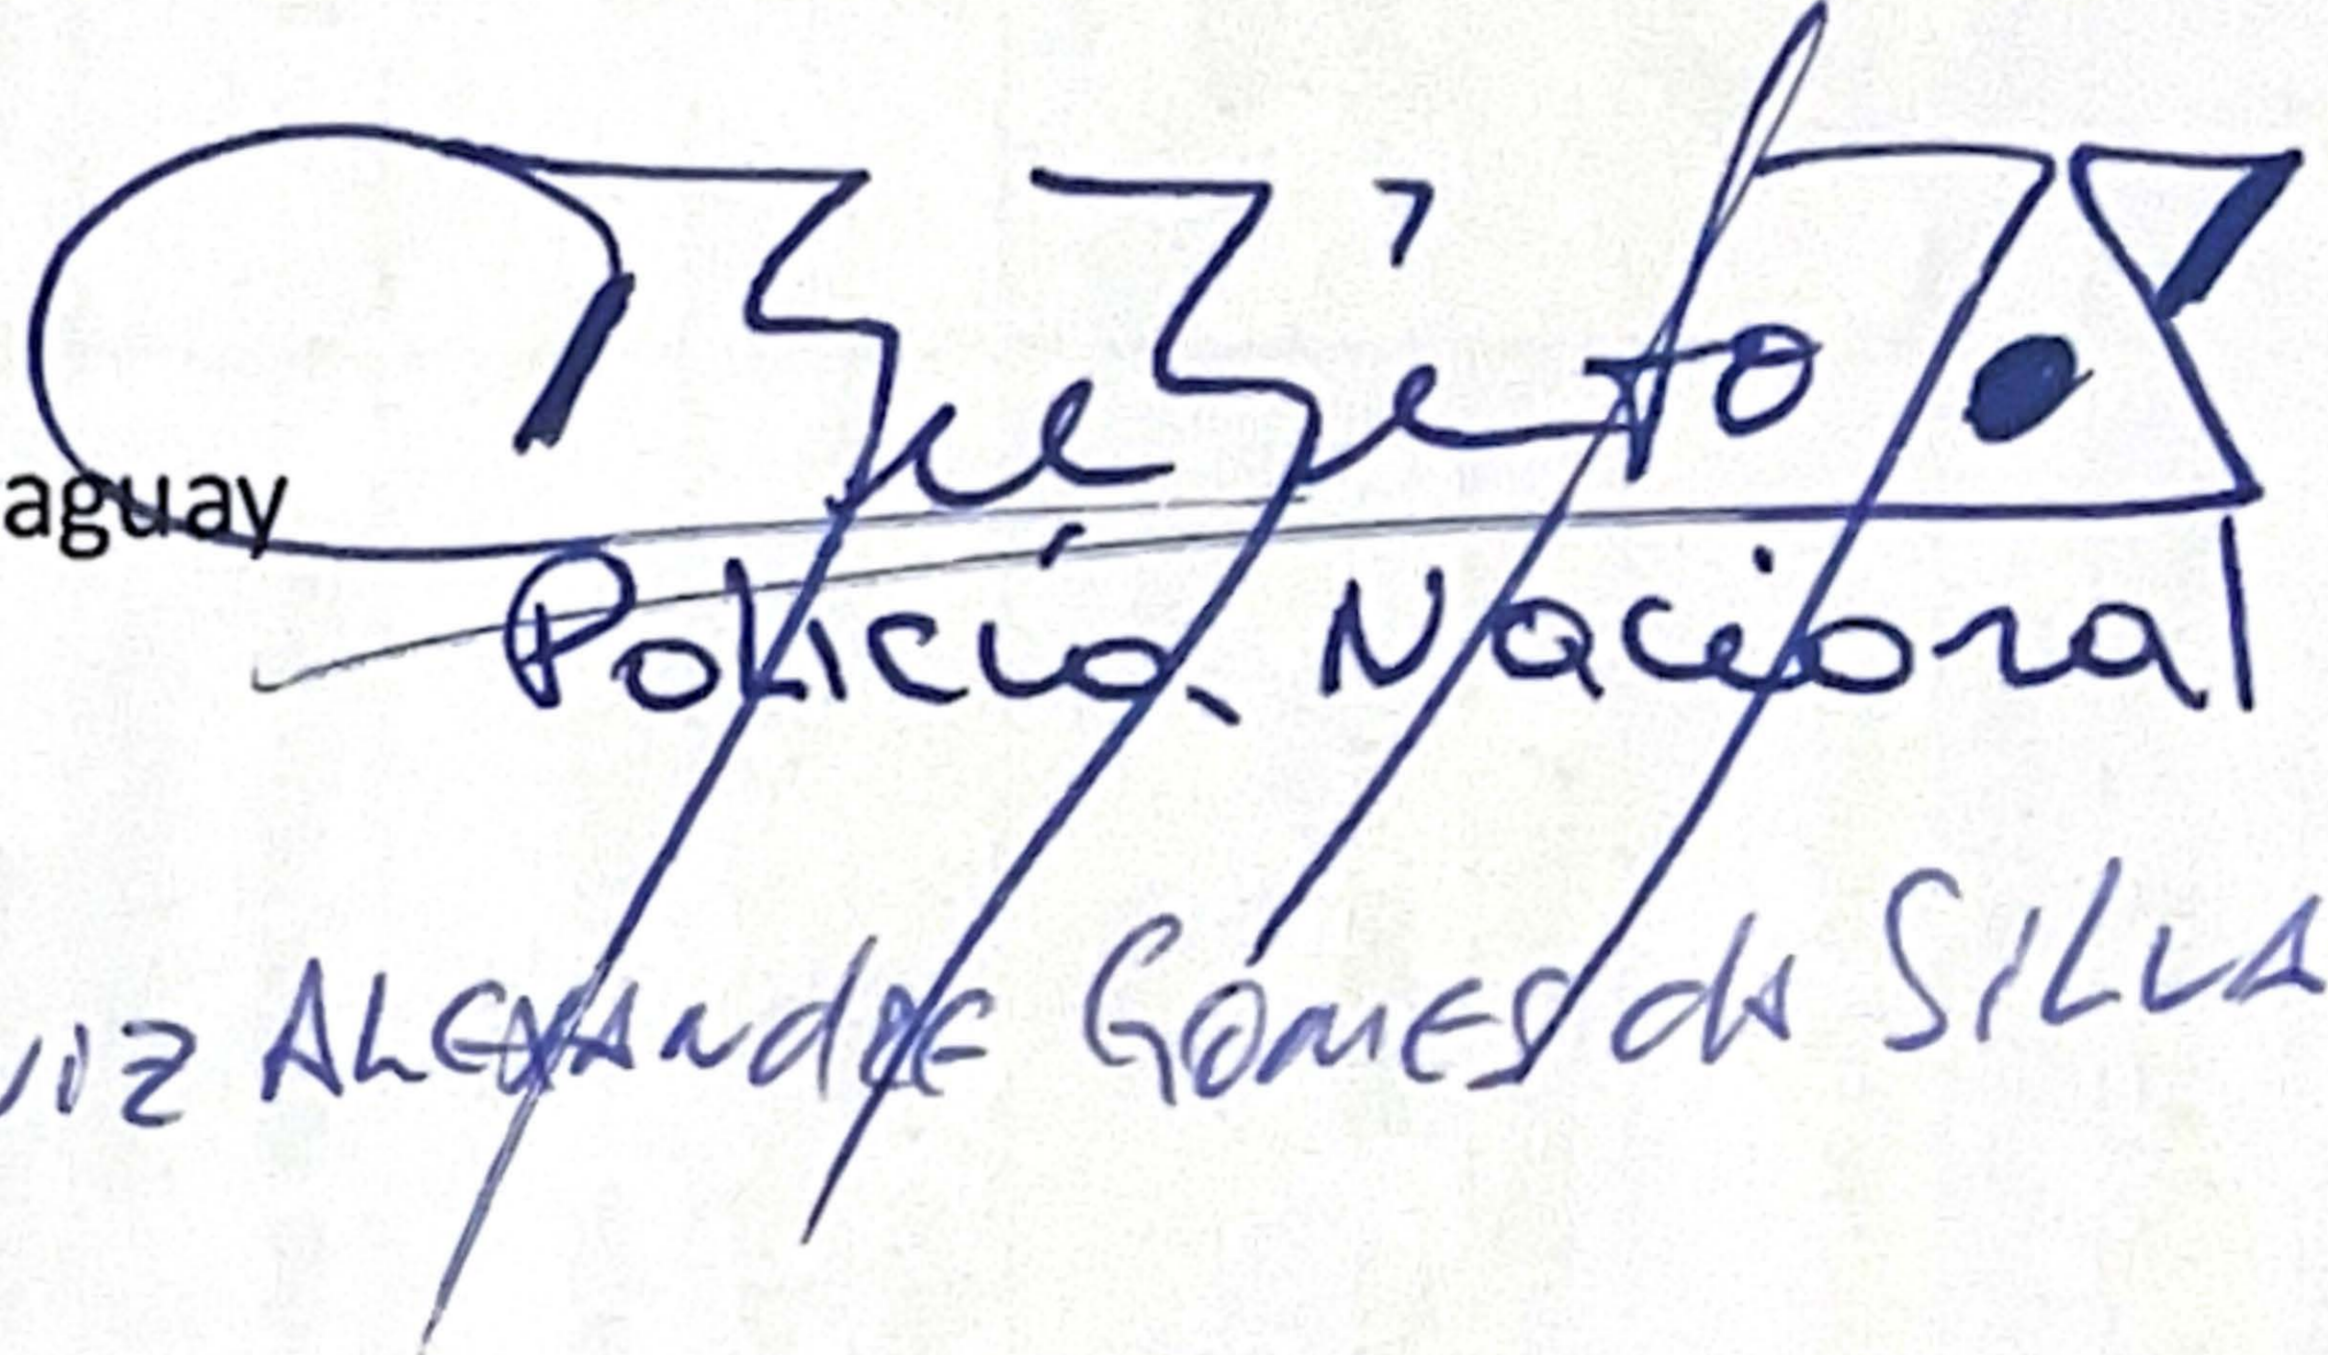 aguay
Policía Nacional
uiz ALEXANdRE GOMES dA SILVA